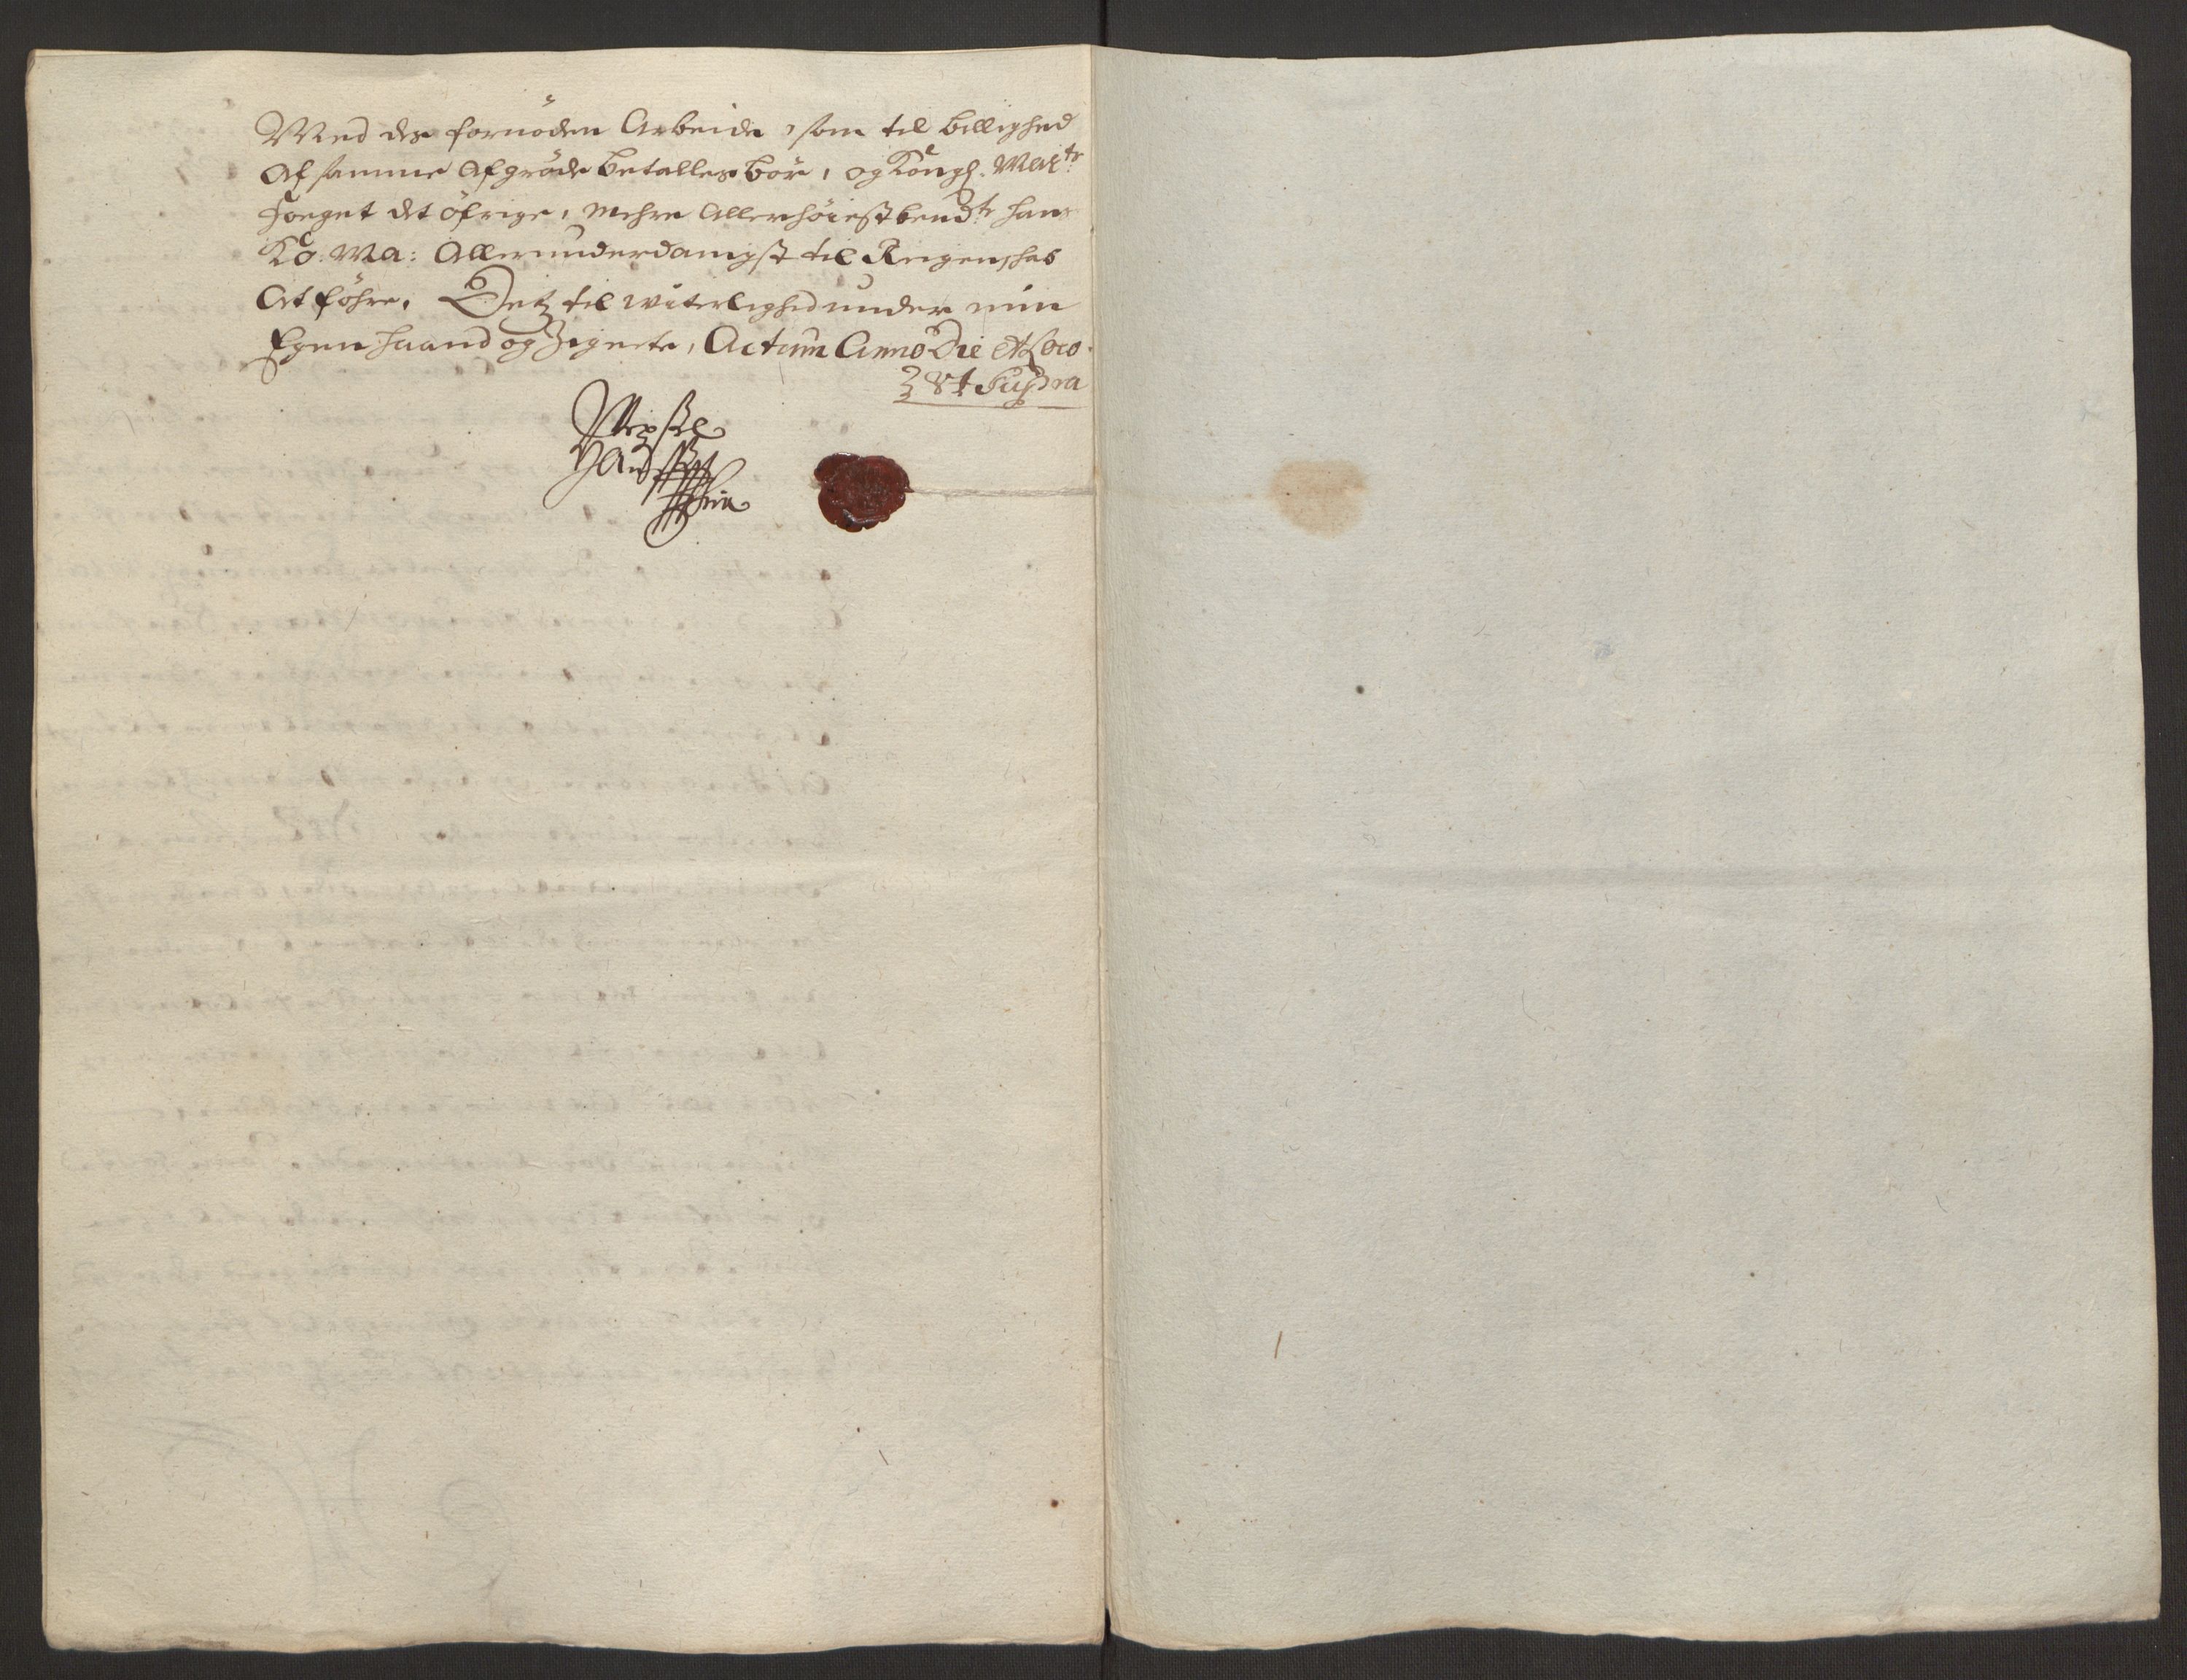 Med des fornöden Arbeide, som til billighed
Af samme Afgröde betalles bör, og Kongl. Mayts
Foeget det öfrige, Mehre Allerhöiestbendte hans
Ko: Ma: Allerunderdanigst til Reigenschab
At föhre. Detz til witerlighed under min
Egen haand og Zignete, Actum Anno Die et Loco
Ut Supra